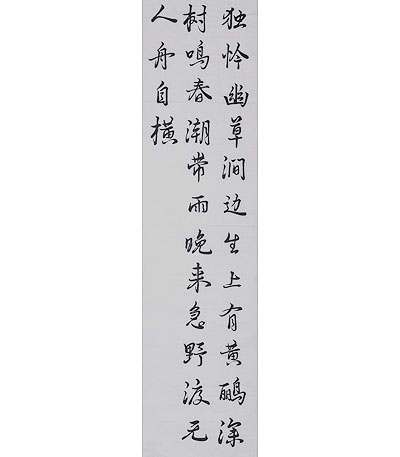 独怜幽草涧边生上有黄鹂深
树鸣春潮带雨晚来急野渡无
人舟自横